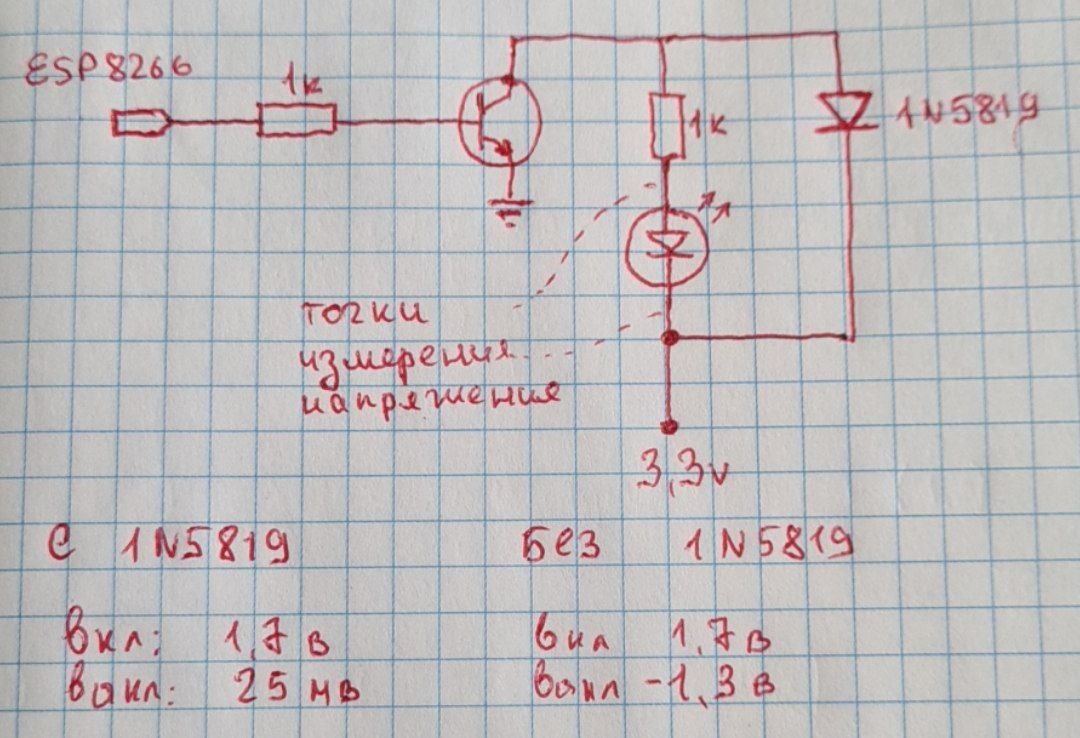 ESP8266
1к
1к
1N5819
точки
измерения
напряжения
3,3v
С 1N5819
Без 1N5819
Вкл: 1,7 в
Выкл: 25 мв
Вкл 1,7 в
Выкл -1,3 в